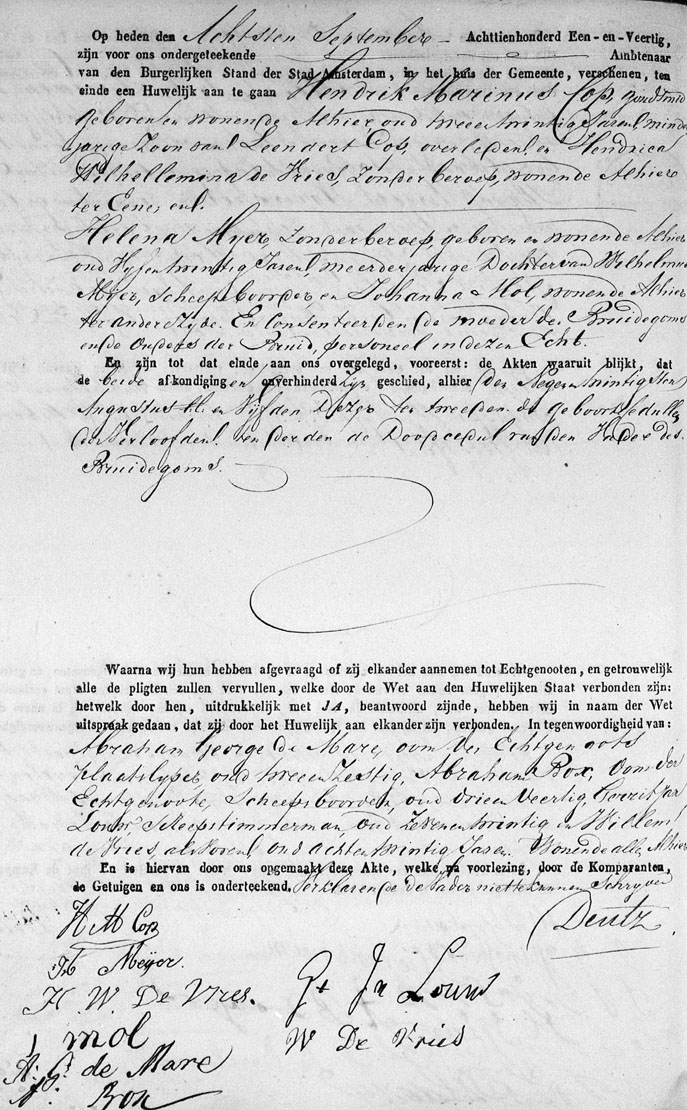 Op heden den Achtsten September Achttienhonderd Een-en-Veertig,
zijn voor ons ondergeteekende Ambtenaar
van den Burgerlijken Stand der Stad Amsterdam, in het huis der Gemeente, verschenen, ten
einde een Huwelijk aan te gaan Hendrik Marinus Cop,
geboren en wonende Alhier oud tweeentwintig Jaren, minder
jarige Zoon van Leendert Cop, overleden, en Hendrica
Wilhellemina de Vries, Zonder beroep, wonende Alhier
ter Eene, en
Helena Myer, Zonder beroep, geboren en wonende Alhier
oud Vyfentwintig Jaren meerderjarige Dochter van Wilhelmus
Myer, Scheepsboorder en Johanna Mol, wonende Alhier
ter andere Zyde. En Consenteerden de moeder des Bruidegoms
en de Ouders der Bruid, personeel in dezen Echt.
En zijn tot dat einde aan ons overgelegd, vooreerst: de Akten waaruit blijkt, dat
de beide afkondigingen onverhinderd zyn geschied, alhier den Negenentwintigsten
Augustus ll. en Vijfden Dezer ten tweeden de geboorte Cedullen
der Verloofden, ten derden de Doodcedul van den Vader des
Bruidegoms.
Waarna wij hun hebben afgevraagd of zij elkander aannemen tot Echtgenooten, en getrouwelijk
alle de pligten zullen vervullen, welke door de Wet aan den Huwelijken Staat verbonden zijn:
hetwelk door hen, uitdrukkelijk met JA, beantwoord zijnde, hebben wij in naam der Wet
uitspraak gedaan, dat zij door het Huwelijk aan elkander zijn verbonden. In tegenwoordigheid van:
Abraham George de Mare, oom des Echtgenoots
plaatslyper oud tweeenzestig, Abraham Box, Oom der
Echtgenoote, Scheepsboorder, oud drieenVeertig, Gerrit Jan
Louw, Scheepstimmerman, oud Zevenentwintig en Willem
de Vries, oud achtentwintig Jaren. Wonende allen Alhier
En is hiervan door ons opgemaakt deze Akte, welke na voorlezing, door de Komparanten,
de Getuigen en ons is onderteekend. Verklarende de Vader niet te kunnen Schryven
Deutz
HM Cop
H Meyer.
H. W. De Vries.
Gt Jn Louw
mol
W De Vries
A. G. de Mare
A. Box